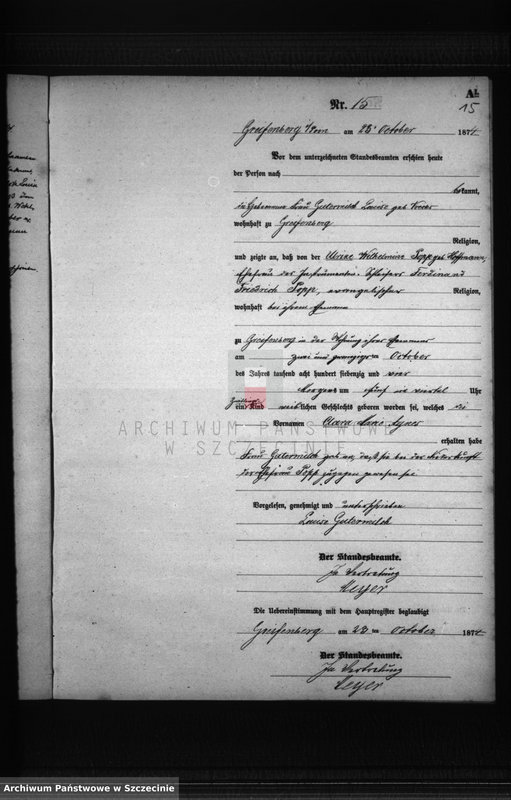 A.
Nr. 15
15
Greifenberg i/Pom am 23. October 1874
Vor dem unterzeichneten Standesbeamten erschien heute
der Person nach
bekannt,
die Hebeamme Frau Gutermilch Louise geb.
wohnhaft zu Greifenberg
Religion,
und zeigte an, daß von der Ulrike Wilhelmine Popp geb. Hoffmann,
Ehefrau des Ferdinand
Friedrich Popp, evangelischer Religion,
wohnhaft bei ihrem Ehemann
zu Greifenberg in der Wohnung ihres Ehemannes
am zwei und zwanzigsten October
des Jahres tausend acht hundert siebenzig und vier
Morgens um fünf ein viertel Uhr
ein Kind weiblichen Geschlechts geboren worden sei, welches die
Vornamen Clara Agnes
erhalten habe
Frau Gutermilch gab an, daß sie bei der Niederkunft
der Ehefrau Popp zugegen gewesen sei
Vorgelesen, genehmigt und unterschrieben
Louise Gutermilch
Der Standesbeamte.
In Vertretung
Meyer
Die Uebereinstimmung mit dem Hauptregister beglaubigt
Greifenberg am 23 ten October 1874
Der Standesbeamte.
In Vertretung
Meyer
ARCHIWUM PAŃSTWOWE
W SZCZECINIE
Archiwum Państwowe w Szczecinie